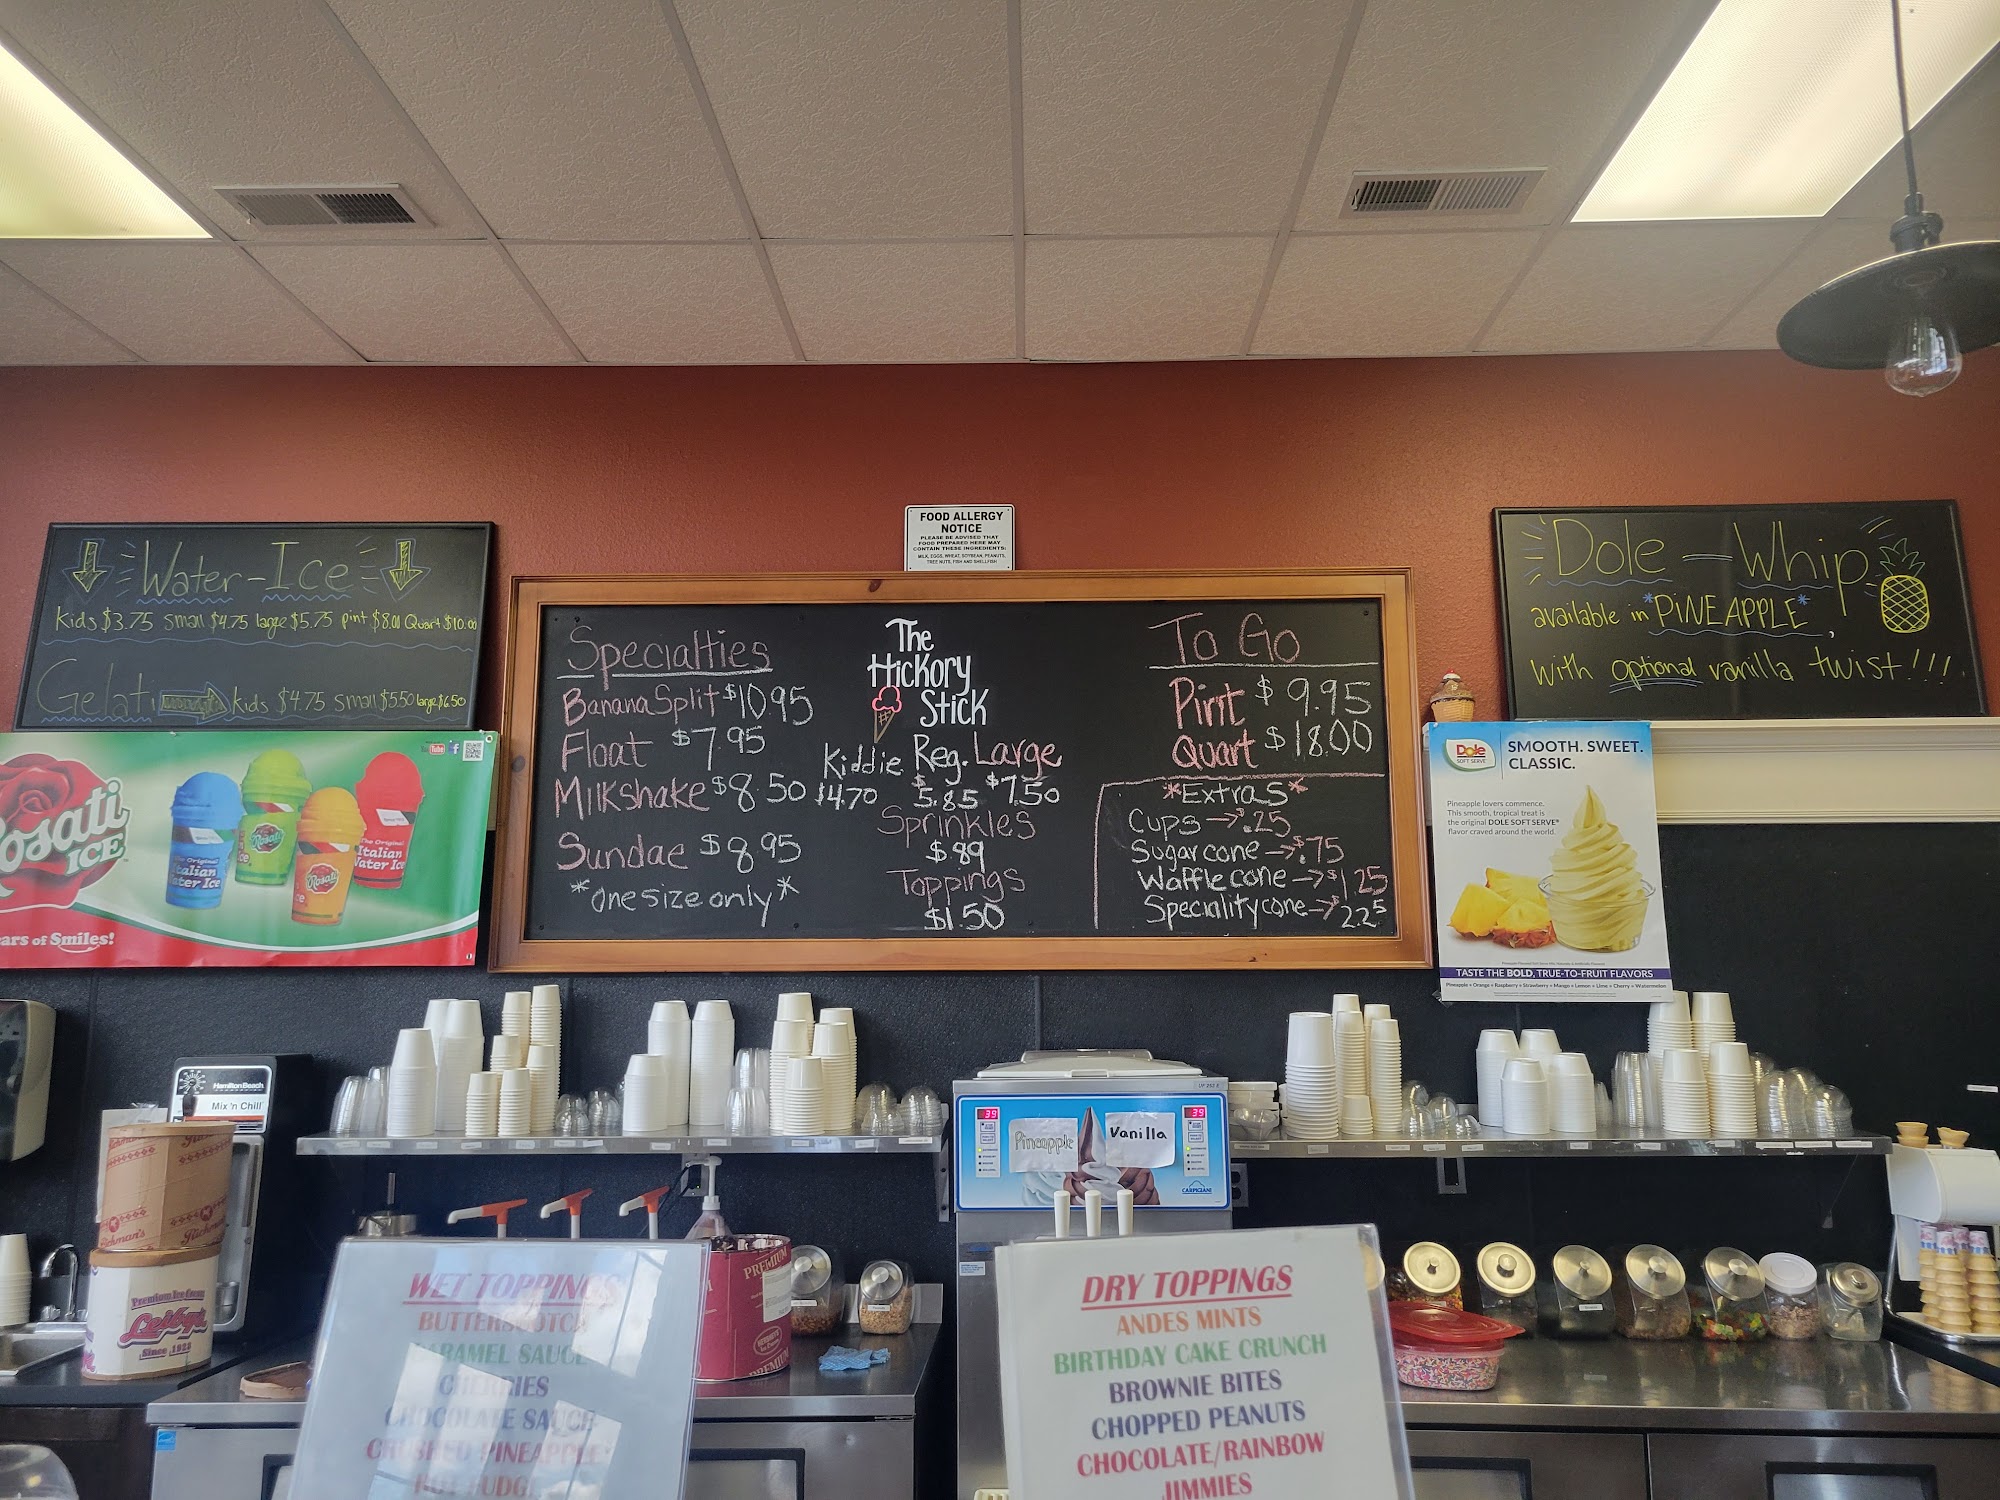 Water-Ice
Kids $3.75 small $4.75 large $5.75 pint $8.00 Quart $10.00
Gelati kids $4.75 small $5.50 large $6.50
Rosati
ICE
The Original
Italian
Water Ice
Rosati
The Original
Italian
Water Ice
ears of Smiles!
FOOD ALLERGY
NOTICE
PLEASE BE ADVISED THAT
FOOD PREPARED HERE MAY
CONTAIN THESE INGREDIENTS:
MILK, EGGS, WHEAT, SOYBEAN, PEANUTS,
TREE NUTS, FISH AND SHELLFISH
Specialties
Banana Split $10.95
Float $7.95
Milkshake $8.50
Sundae $8.95
*one size only*
The
Hickory
Stick
Kiddie Reg. Large
$4.70 $5.85 $7.50
Sprinkles
$.89
Toppings
$1.50
To Go
Pint $9.95
Quart $18.00
*Extras*
Cups → $.25
Sugar cone → $.75
Waffle cone → $1.25
Speciality cone → $2.25
Dole-Whip
available in *PINEAPPLE*,
with optional vanilla twist!!!
Dole
SOFT SERVE
SMOOTH. SWEET.
CLASSIC.
Pineapple lovers commence.
This smooth, tropical treat is
the original DOLE SOFT SERVE®
flavor craved around the world.
TASTE THE BOLD, TRUE-TO-FRUIT FLAVORS
Pineapple • Orange • Raspberry • Strawberry • Mango • Lemon • Lime • Cherry • Watermelon
Hamilton Beach
Mix 'n Chill
39
39
Pineapple
Vanilla
CARPIGIANI
Premium Ice Cream
Leiby's
Since 1928
PREMIUM
WET TOPPINGS
BUTTERSCOTCH
CARAMEL SAUCE
CHERRIES
CHOCOLATE SAUCE
CRUSHED PINEAPPLE
HOT FUDGE
DRY TOPPINGS
ANDES MINTS
BIRTHDAY CAKE CRUNCH
BROWNIE BITES
CHOPPED PEANUTS
CHOCOLATE/RAINBOW
JIMMIES